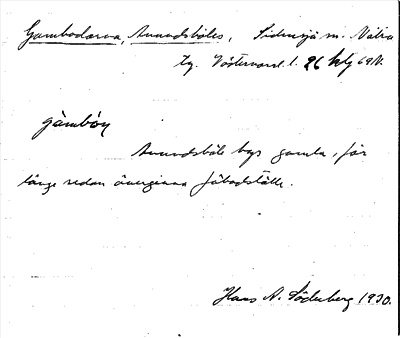 Gambodarna, Avundsböles, Sidensjö sn. Nätra
tg. Västernorrl. l. 26 k/g 69N.
gàmbóṇ
Avundsböle bys gamla, för
länge sedan övergivna fäbodställe.
Hans A. Söderberg 1930.